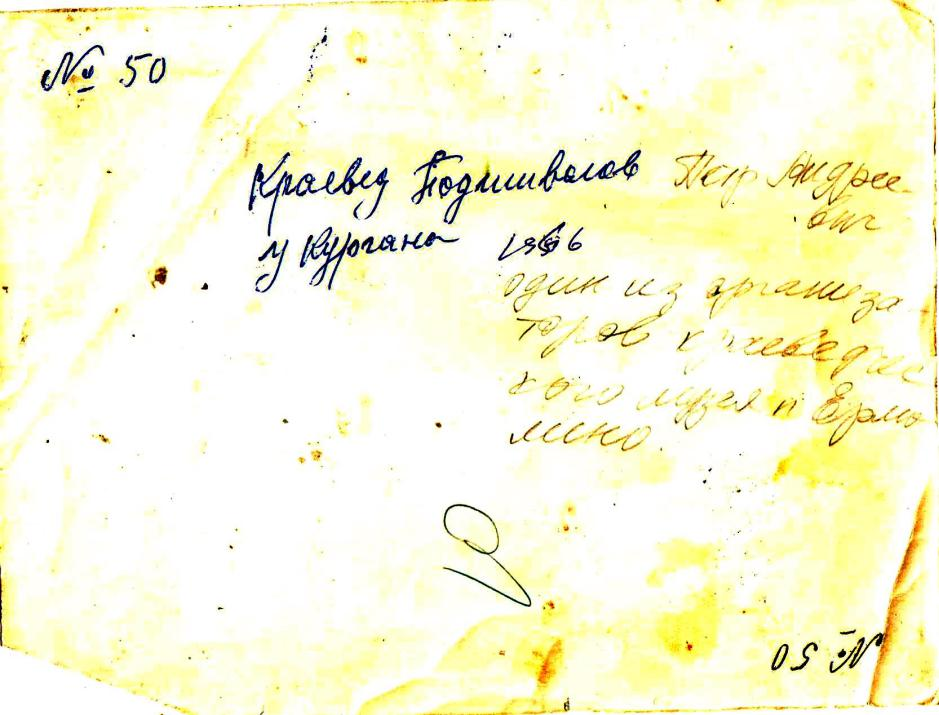 № 50
Краевед Подшивалов Петр Андрее-
вич
у Кургана 1966
один из организа-
торов краеведчес
кого музея п Ермо
лино.
№ 50